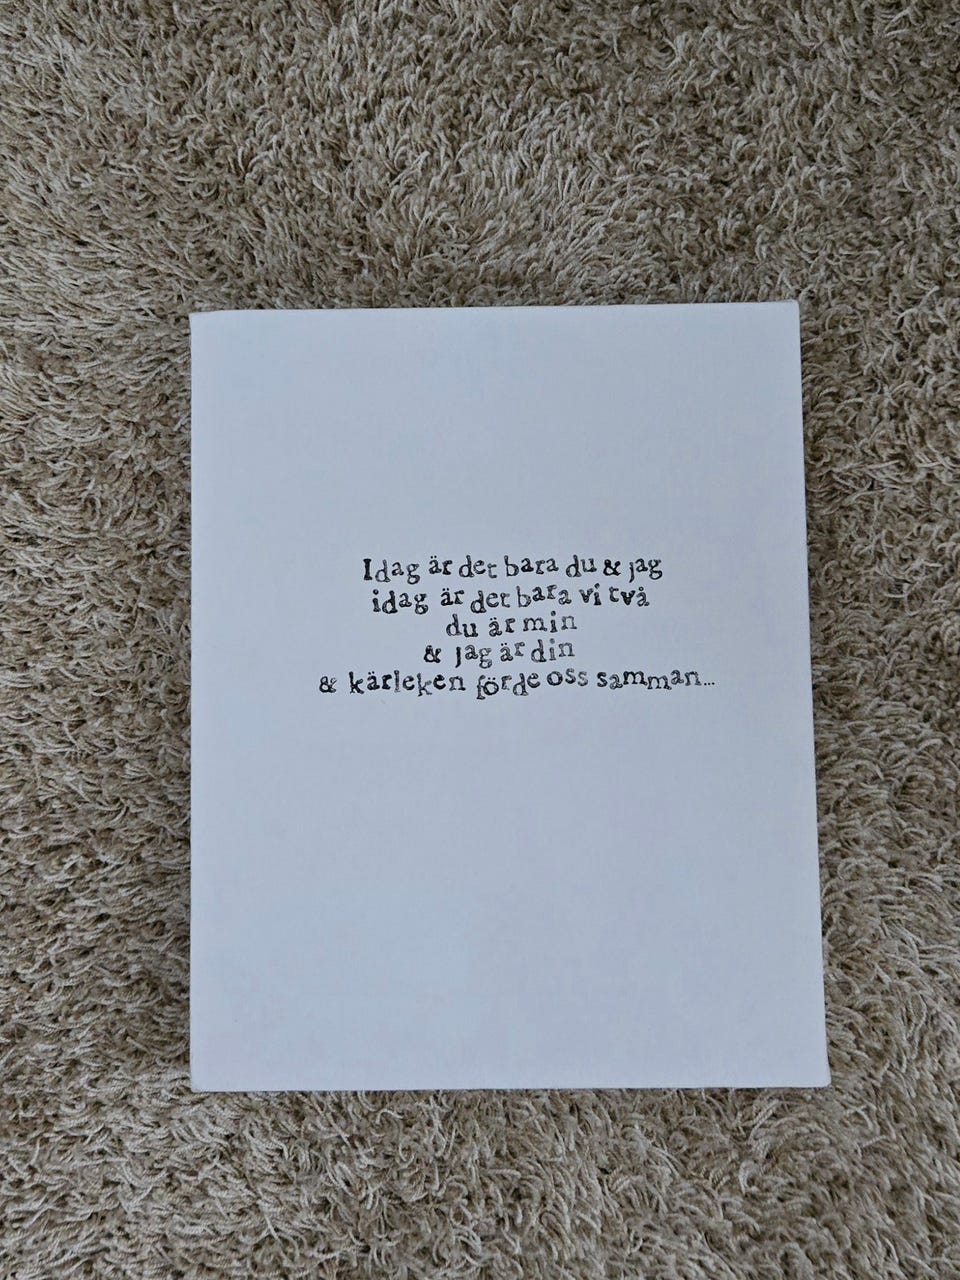 Idag är det bara du & jag
idag är det bara vi två
du är min
& jag är din
& kärleken förde oss samman...